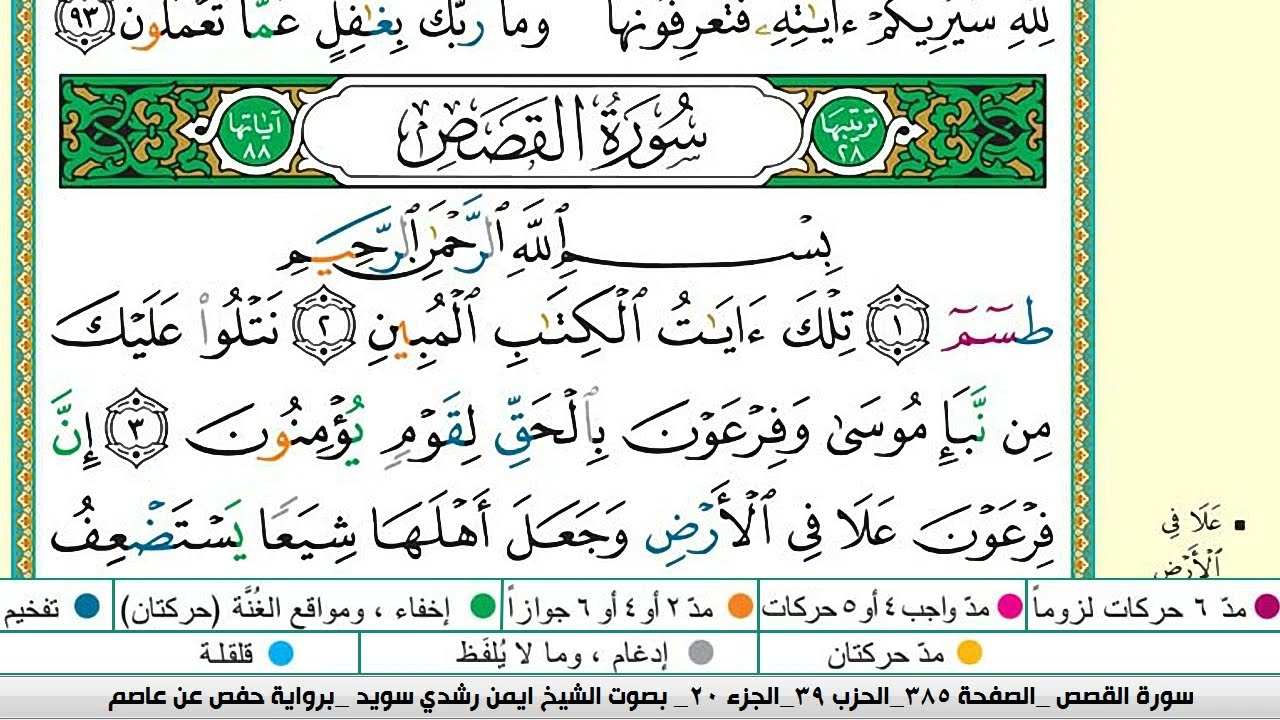 لِلَّهِ سَيُرِيكُمْ ءَايَٰتِهِۦ فَتَعْرِفُونَهَا وَمَا رَبُّكَ بِغَٰفِلٍ عَمَّا تَعْمَلُونَ ٩٣
ترتيبها ٢٨ سُورَةُ القَصَصِ آياتها ٨٨
بِسْمِ ٱللَّهِ ٱلرَّحْمَٰنِ ٱلرَّحِيمِ
طسٓمٓ ١ تِلْكَ ءَايَٰتُ ٱلْكِتَٰبِ ٱلْمُبِينِ ٢ نَتْلُوا۟ عَلَيْكَ
مِن نَّبَإِ مُوسَىٰ وَفِرْعَوْنَ بِٱلْحَقِّ لِقَوْمٍ يُؤْمِنُونَ ٣ إِنَّ
فِرْعَوْنَ عَلَا فِى ٱلْأَرْضِ وَجَعَلَ أَهْلَهَا شِيَعًا يَسْتَضْعِفُ
▪ عَلَا فِى
ٱلْأَرْضِ
مدّ ٦ حركات لزوماً مدّ واجب ٤ أو ٥ حركات مدّ ٢ أو ٤ أو ٦ جوازاً إخفاء ، ومواقع الغُنَّة (حركتان) تفخيم
مدّ حركتان إدغام ، وما لا يُلفَظ قلقلة
سورة القصص _الصفحة ٣٨٥_الحزب ٣٩_الجزء ٢٠_ بصوت الشيخ ايمن رشدي سويد _برواية حفص عن عاصم